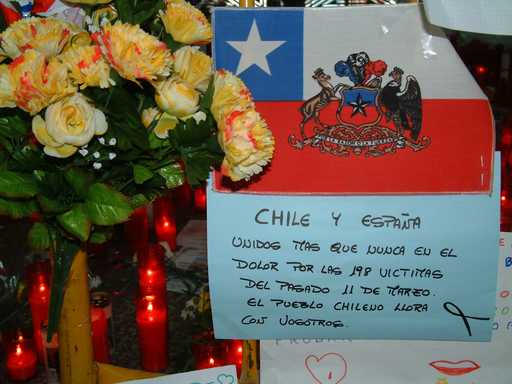 POR LA RAZON O LA FUERZA
CHILE Y ESPAÑA
UNIDOS MAS QUE NUNCA EN EL
DOLOR POR LAS 198 VICTIMAS
DEL PASADO 11 DE MARZO.
EL PUEBLO CHILENO LLORA
CON VOSOTROS.